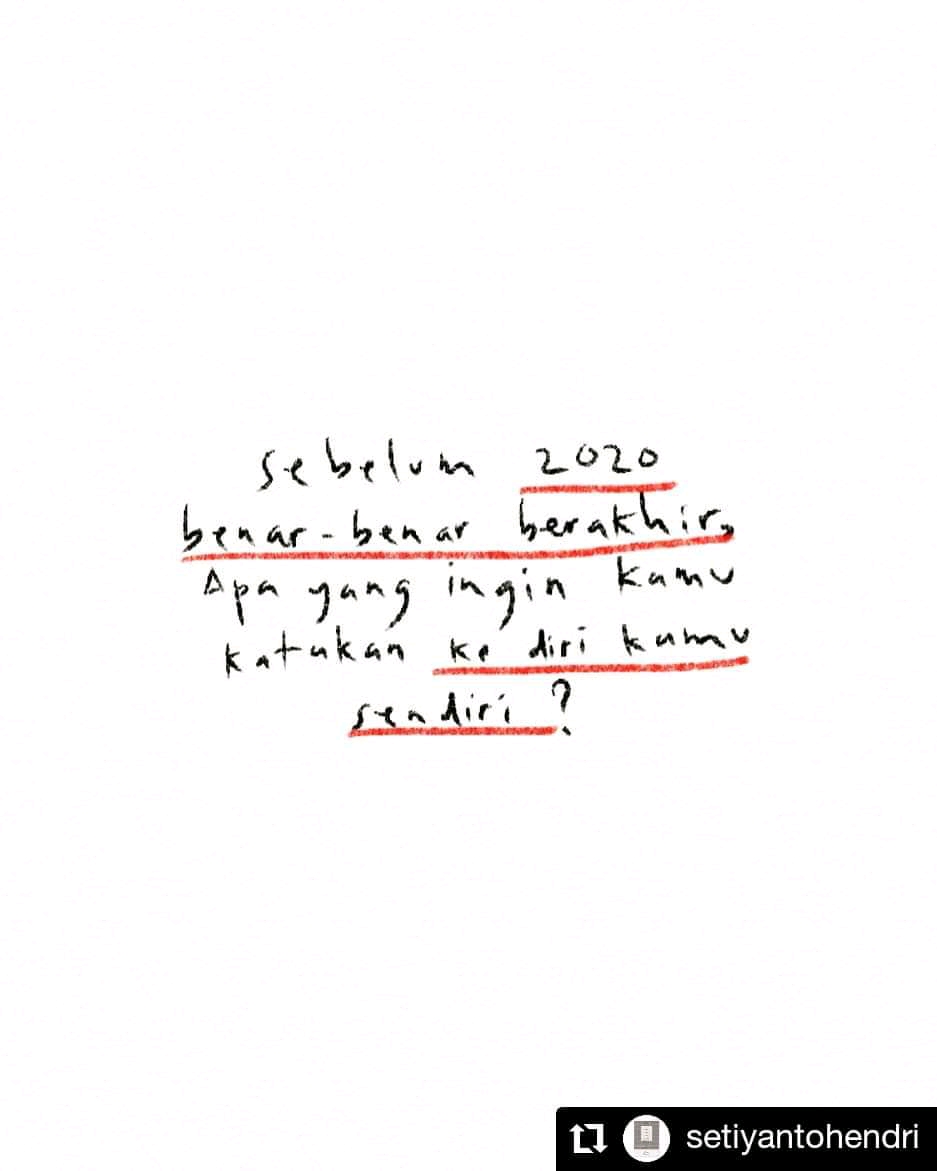 sebelum 2020
benar-benar berakhir,
Apa yang ingin kamu
katakan ke diri kamu
sendiri?
setiyantohendri